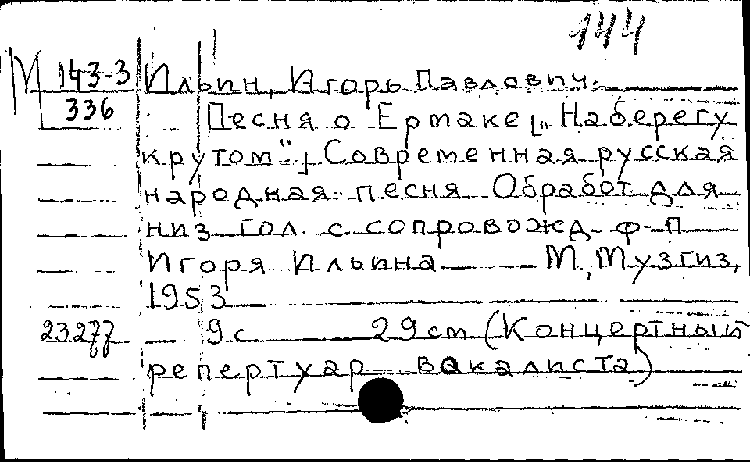 144
М 143-3 Ильин, Игорь Павлович.
336 Песня о Ермаке [„На берегу
крутом"] Современная русская
народная песня Обработ для
низ гол. с сопровожд ф-п
Игоря Ильина М, Музгиз,
1953
23277 9с 29см (Концертный
репертуар вакалиста)